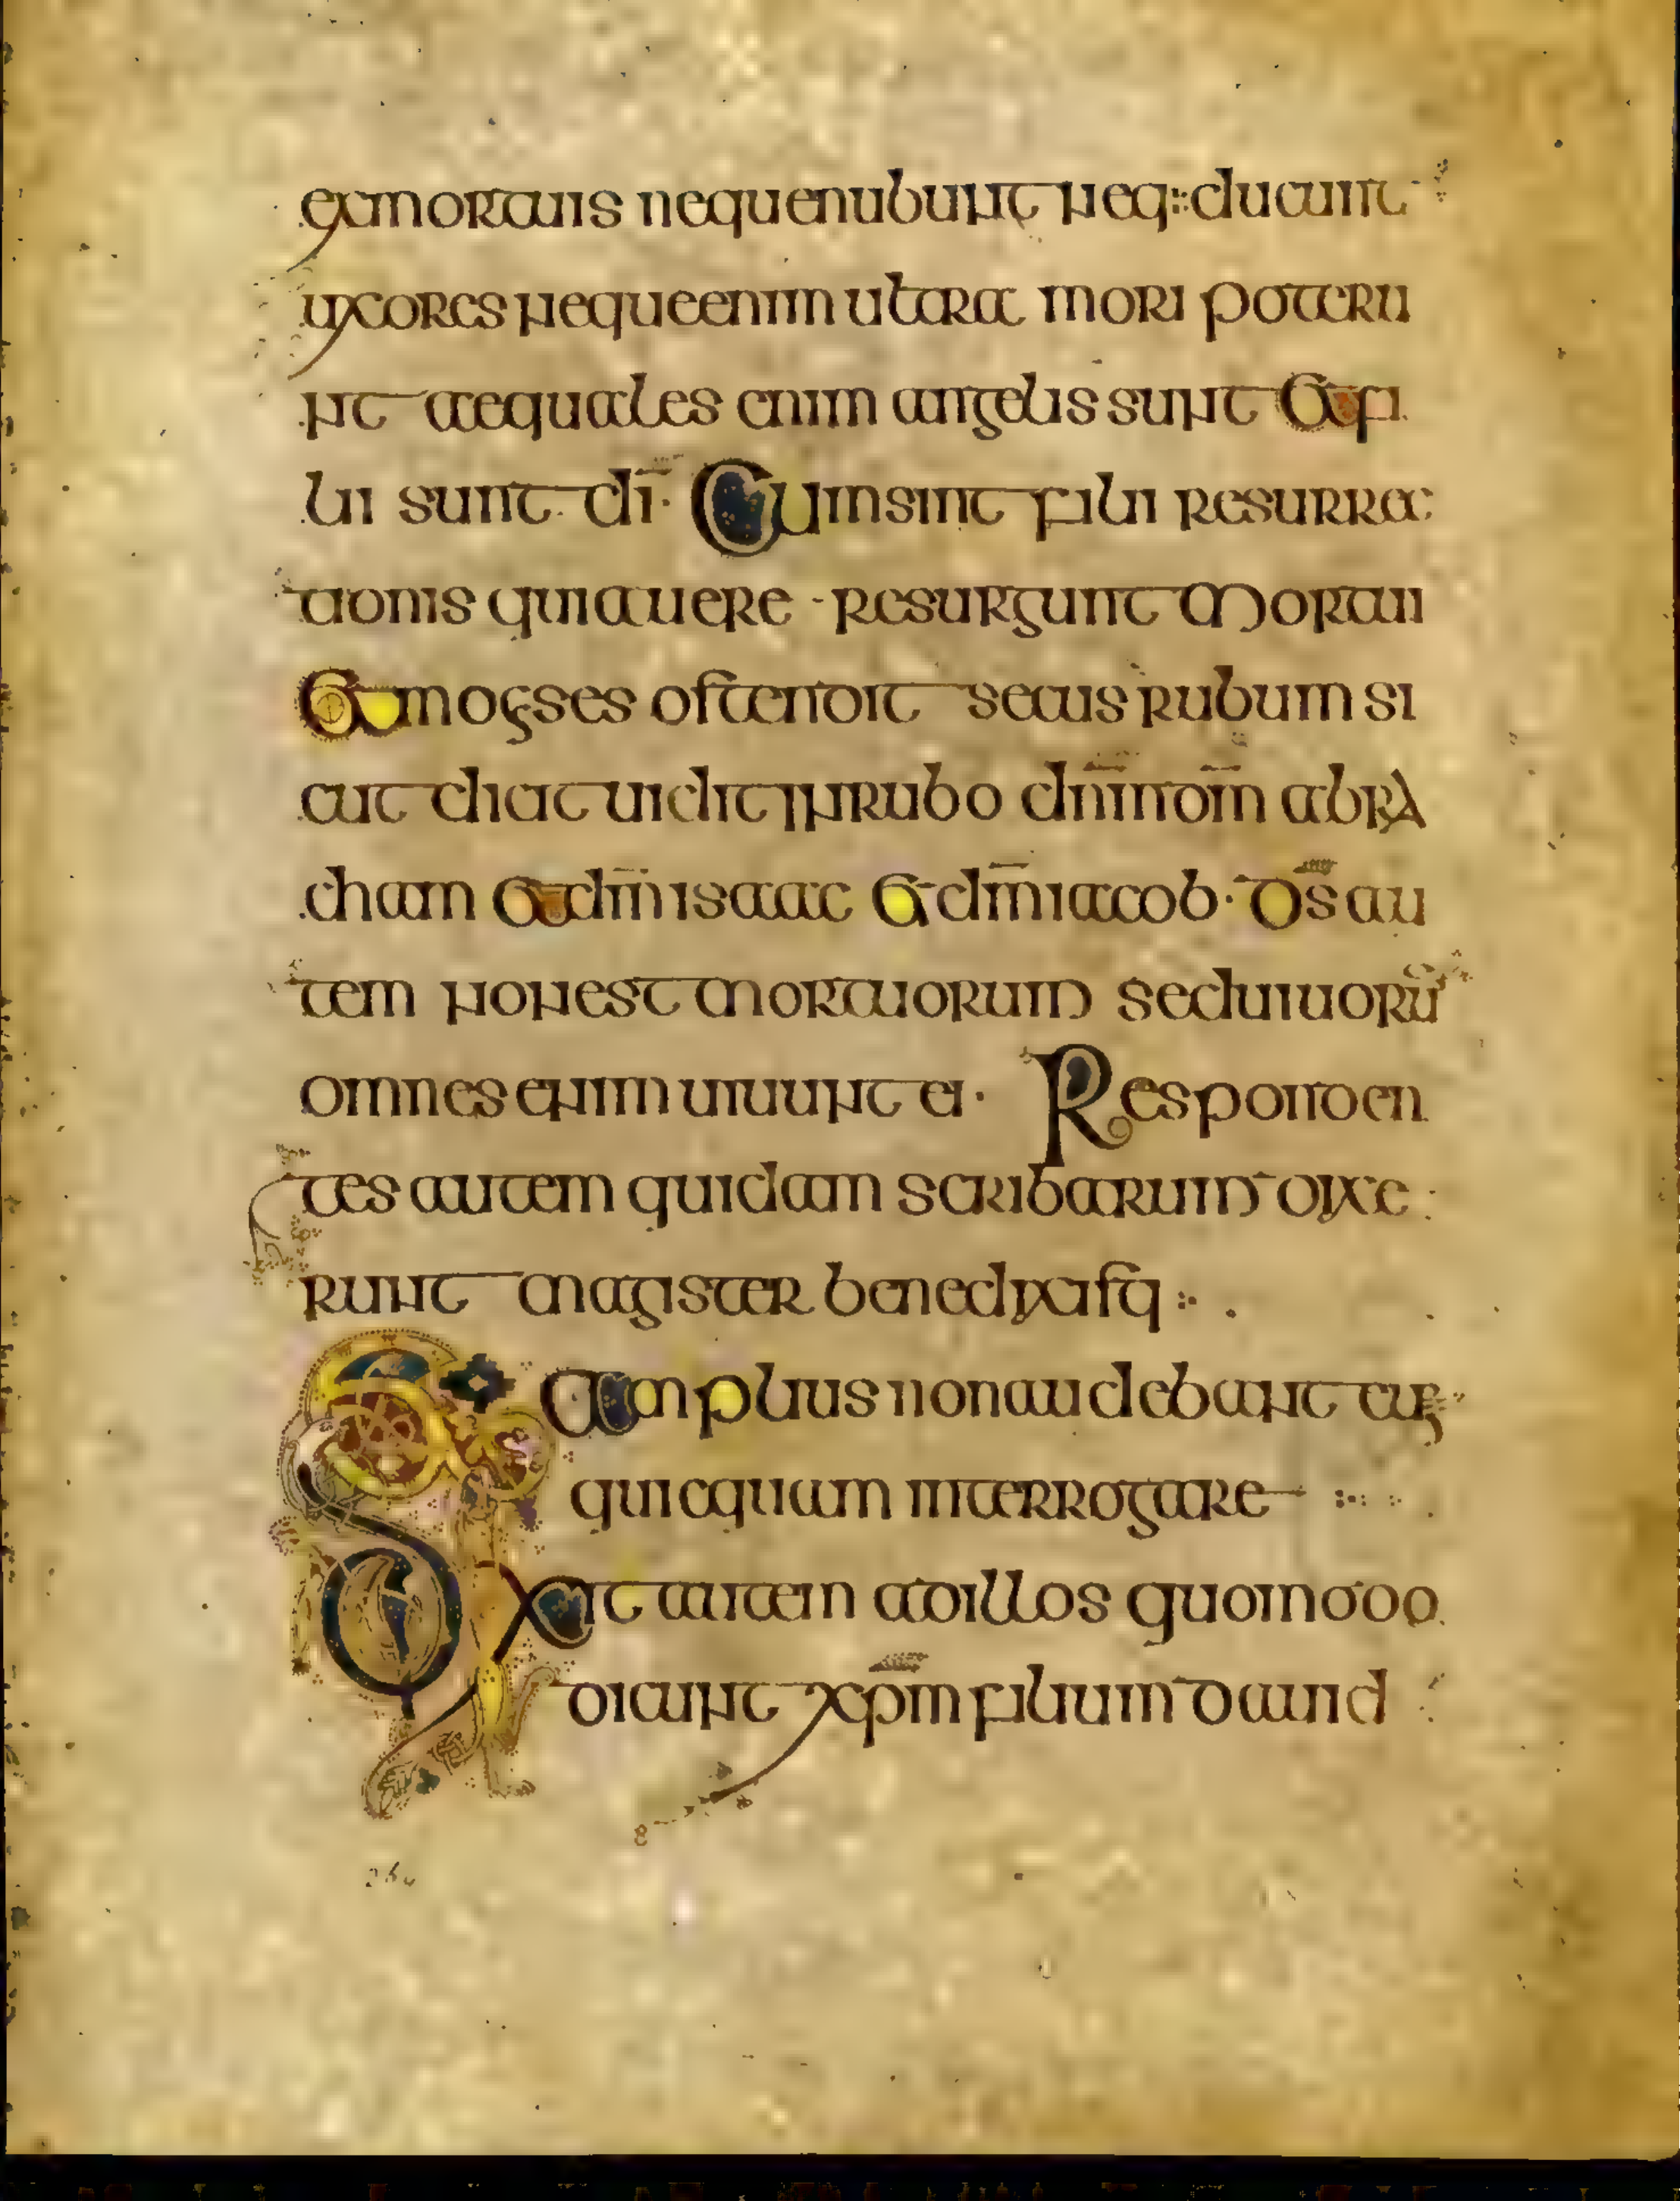 exmortuis nequenubunt neq: ducunt
uxores nequeenim ultra mori poteru
nt aequales enim angelis sunt et fi
lii sunt di̅ · Cumsint filii resurrec
tionis quiauere · resurgunt mortui
Et moyses ostendit secus rubum si
cut dicit uidit inrubo dn̅m do̅m abra
cham et dm̅ isaac et dm̅ iacob · ds̅ au
tem nonest mortuorum sed uiuoru̅
omnes enim uiuunt ei · Responden
tes autem quidam scribarum dixe
runt magister benedixisti
Et amplius non audebant eum
quicquam interrogare
Dixit autem adillos quomodo
dicunt xp̅m filium dauid